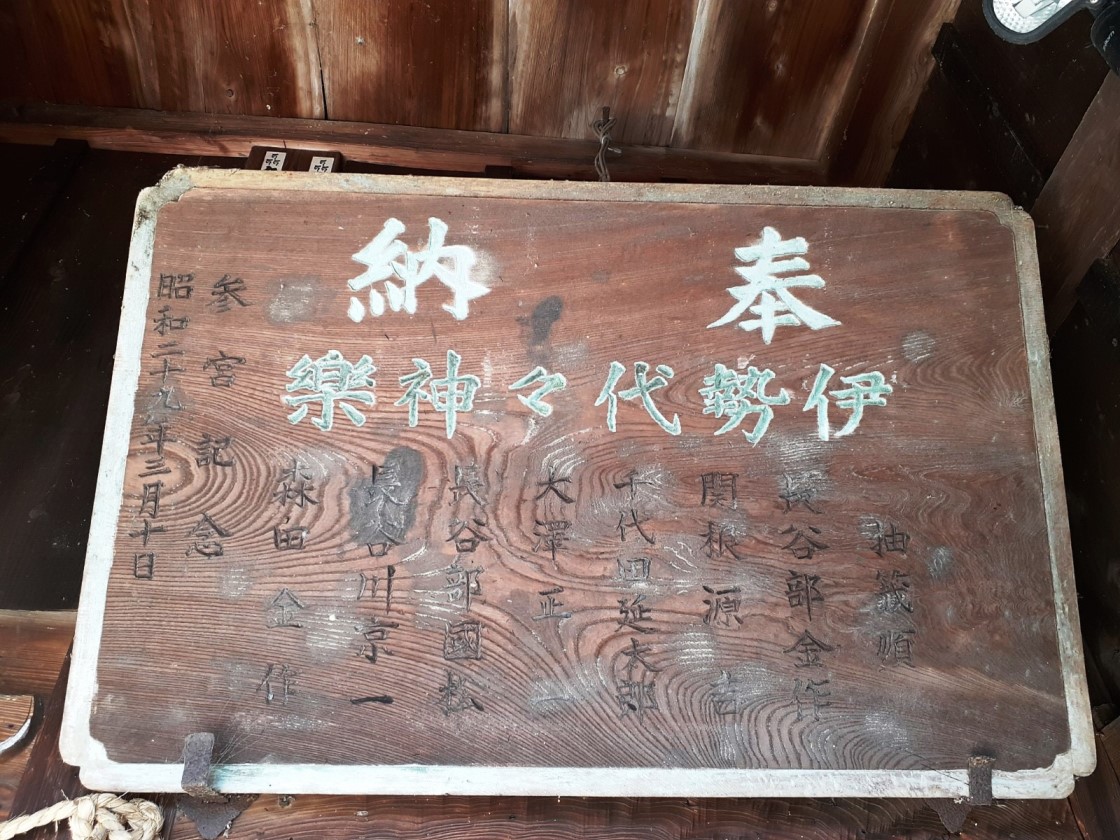 奉納
伊勢代々神樂
抽籤順
長谷部金作
関根源吉
千代田延太郎
大澤正一
長谷部國松
長谷川京一
森田金作
参宮記念
昭和二十九年三月十日